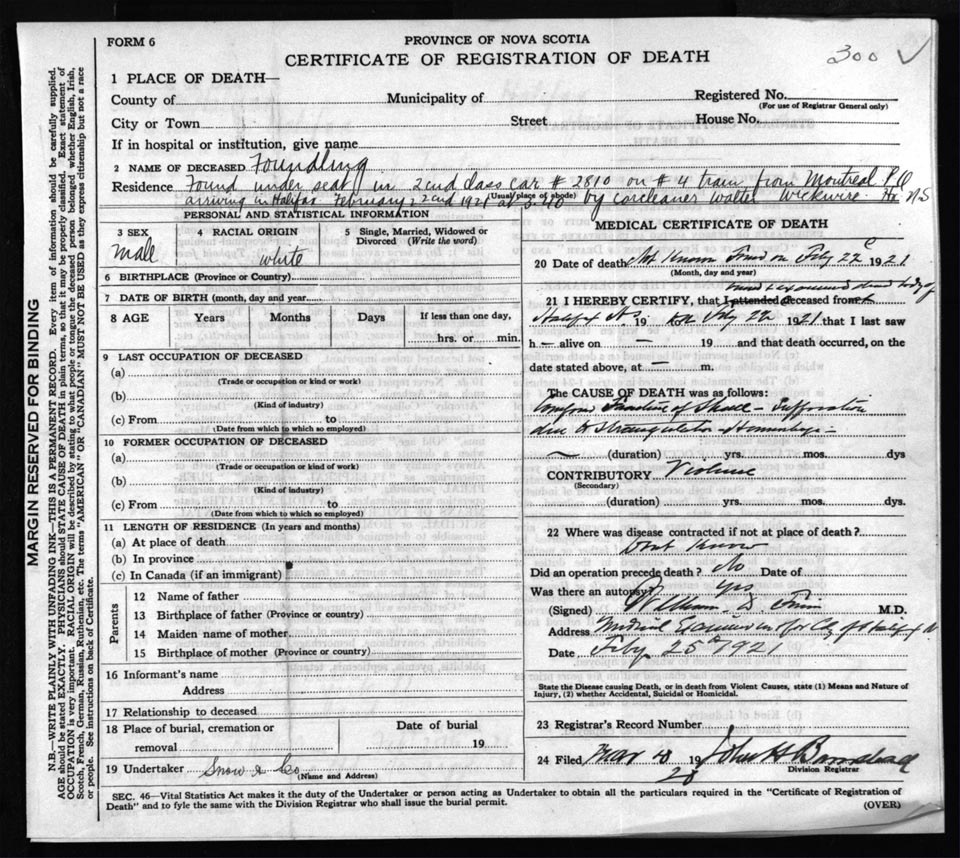 FORM 6
PROVINCE OF NOVA SCOTIA
CERTIFICATE OF REGISTRATION OF DEATH
300 ✓
1 PLACE OF DEATH—
County of Municipality of Registered No.
(For use of Registrar General only)
City or Town Street House No.
If in hospital or institution, give name
2 NAME OF DECEASED Foundling
Residence Found under seat in 2cnd class car # 2810 on # 4 train from Montreal P.Q
(Usual place of abode)
arriving in Halifax February 22cnd 1921 at by carcleaner Walter Wickwire Hx NS
PERSONAL AND STATISTICAL INFORMATION
3 SEX 4 RACIAL ORIGIN 5 Single, Married, Widowed or
Divorced (Write the word)
male white
6 BIRTHPLACE (Province or Country)
7 DATE OF BIRTH (month, day and year)
8 AGE Years Months Days If less than one day,
hrs. or min.
9 LAST OCCUPATION OF DECEASED
(a)
(Trade or occupation or kind or work)
(b)
(Kind of industry)
(c) From to
(Date from which to which so employed)
10 FORMER OCCUPATION OF DECEASED
(a)
(Trade or occupation or kind of work)
(b)
(Kind of industry)
(c) From to
(Date from which to which so employed)
11 LENGTH OF RESIDENCE (In years and months)
(a) At place of death
(b) In province
(c) In Canada (if an immigrant)
Parents
12 Name of father
13 Birthplace of father (Province or country)
14 Maiden name of mother
15 Birthplace of mother (Province or country)
16 Informant's name
Address
17 Relationship to deceased
18 Place of burial, cremation or Date of burial
removal 19
19 Undertaker Snow & Co
(Name and Address)
MEDICAL CERTIFICATE OF DEATH
20 Date of death Not Known Found on Feby 22 1921
(Month, day and year)
found & examined dead body of
21 I HEREBY CERTIFY, that I attended deceased from
Halifax N.S. 19 Feby 22 1921 that I last saw
h — alive on — 19 and that death occurred, on the
date stated above, at — m.
The CAUSE OF DEATH was as follows:
Fracture of Skull - Suffocation
due to Strangulation - Hemorrhage -
(duration) yrs. mos. dys
CONTRIBUTORY Violence
(Secondary)
(duration) yrs. mos. dys.
22 Where was disease contracted if not at place of death?
Dont Know
Did an operation precede death? No Date of
Was there an autopsy? Yes
(Signed) William D Finn M.D.
Address Medical Examiner for City of Halifax
Date Feby 25th 1921
State the Disease causing Death, or in death from Violent Causes, state (1) Means and Nature of
Injury, (2) whether Accidental, Suicidal or Homicidal.
23 Registrar's Record Number
24 Filed Mar 19
Division Registrar
SEC. 46—Vital Statistics Act makes it the duty of the Undertaker or person acting as Undertaker to obtain all the particulars required in the "Certificate of Registration of
Death" and to fyle the same with the Division Registrar who shall issue the burial permit.
(OVER)
MARGIN RESERVED FOR BINDING
N.B.—WRITE PLAINLY WITH UNFADING INK—THIS IS A PERMANENT RECORD. Every item of information should be carefully supplied.
AGE should be stated EXACTLY. PHYSICIANS should STATE CAUSE OF DEATH in plain terms, so that it may be properly classified. Exact statement of
OCCUPATION is very important. RACIAL ORIGIN will be described by stating to what people or tongue the deceased person belonged whether English, Irish,
Scotch, French, German, Russian, Ruthenian, etc. The terms "AMERICAN" OR "CANADIAN" MUST NOT BE USED as they express citizenship but not a race
or people. See instructions on back of Certificate.